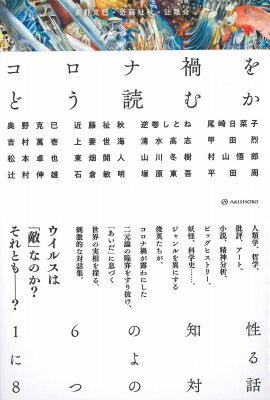 奥野克巳・近藤祉秋・辻陽介 編
コロナ禍を
どう読むか
奥野克巳
吉村萬壱
松本卓也
辻村伸雄
近藤祉秋
上妻世海
東畑開人
石倉敏明
逆卷しとね
清水高志
山川冬樹
塚原東吾
尾崎日菜子
甲田烈
村山悟郎
平田周
AKISHOBO
人類学、哲学、
批評、アート、
小説、精神分析、
ビッグヒストリー、
妖怪、科学史……、
ジャンルを異にする
俊英たちが、
コロナ禍が露わにした
二元論の陥穽をすり抜け、
「あいだ」に息づく
世界の実相を探る、
刺激的な対話集。
ウイルスは
「敵」なのか?
それとも──?
16の知性
による
8つの対話